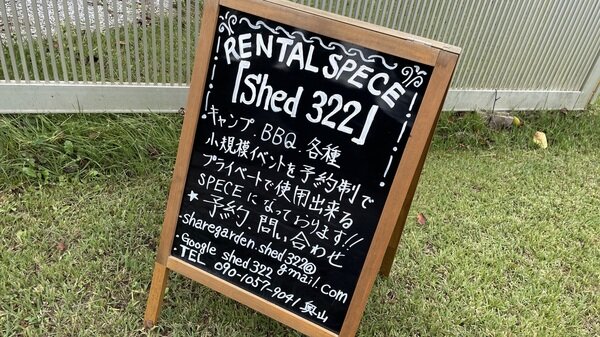 RENTAL SPECE
「Shed 322」
キャンプ.BBQ.各種
小規模イベントを予約制で
プライベートで使用出来る
SPECEになっております!!
★予約.問い合わせ
-sharegarden.shed322@
gmail.com
-Google shed 322
-TEL 090-1057-9041 奥山